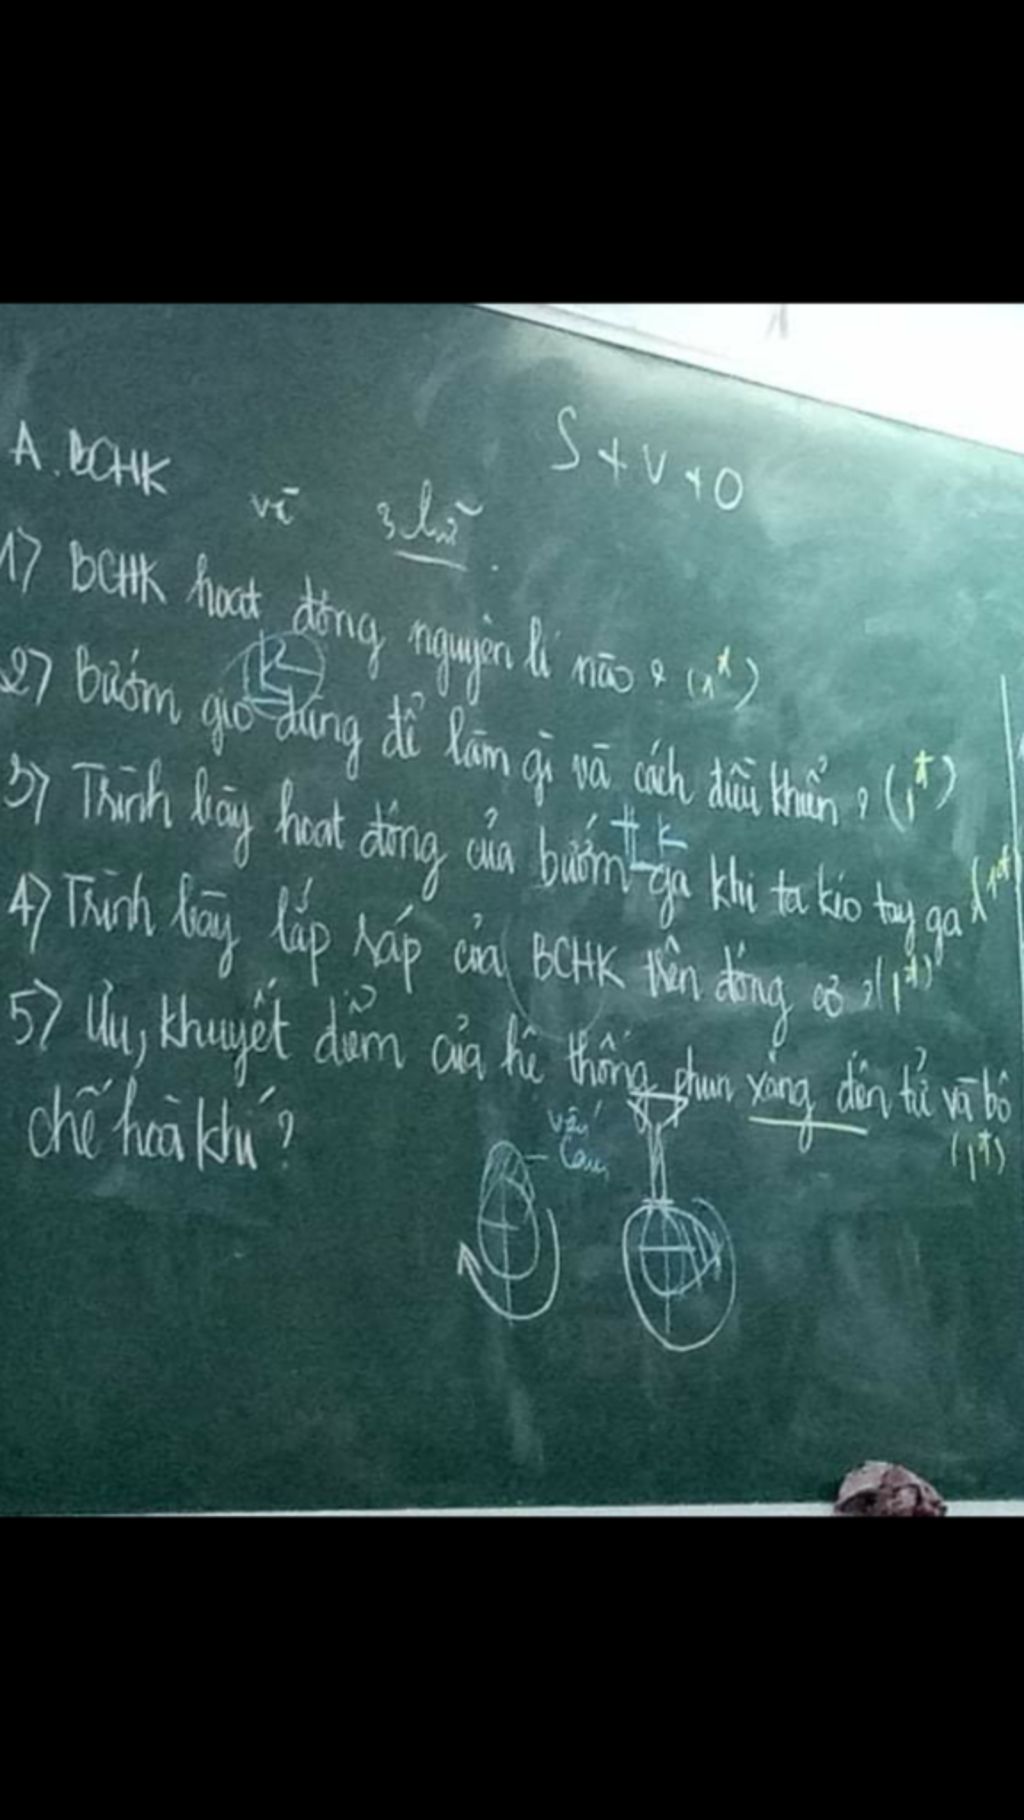 S + V + O
A. BCHK
vì
1) BCHK hoạt động nguyên lí nào ? (1đ)
2) Bướm gió dùng để làm gì và cách điều khiển ? (1đ)
3) Trình bày hoạt động của bướm ga khi ta kéo tay ga
4) Trình bày lắp ráp của BCHK trên động cơ ? (1đ)
5) Ưu, khuyết điểm của hệ thống phun xăng điện tử và bộ
chế hoà khí ?
(1đ)
vấu
cam